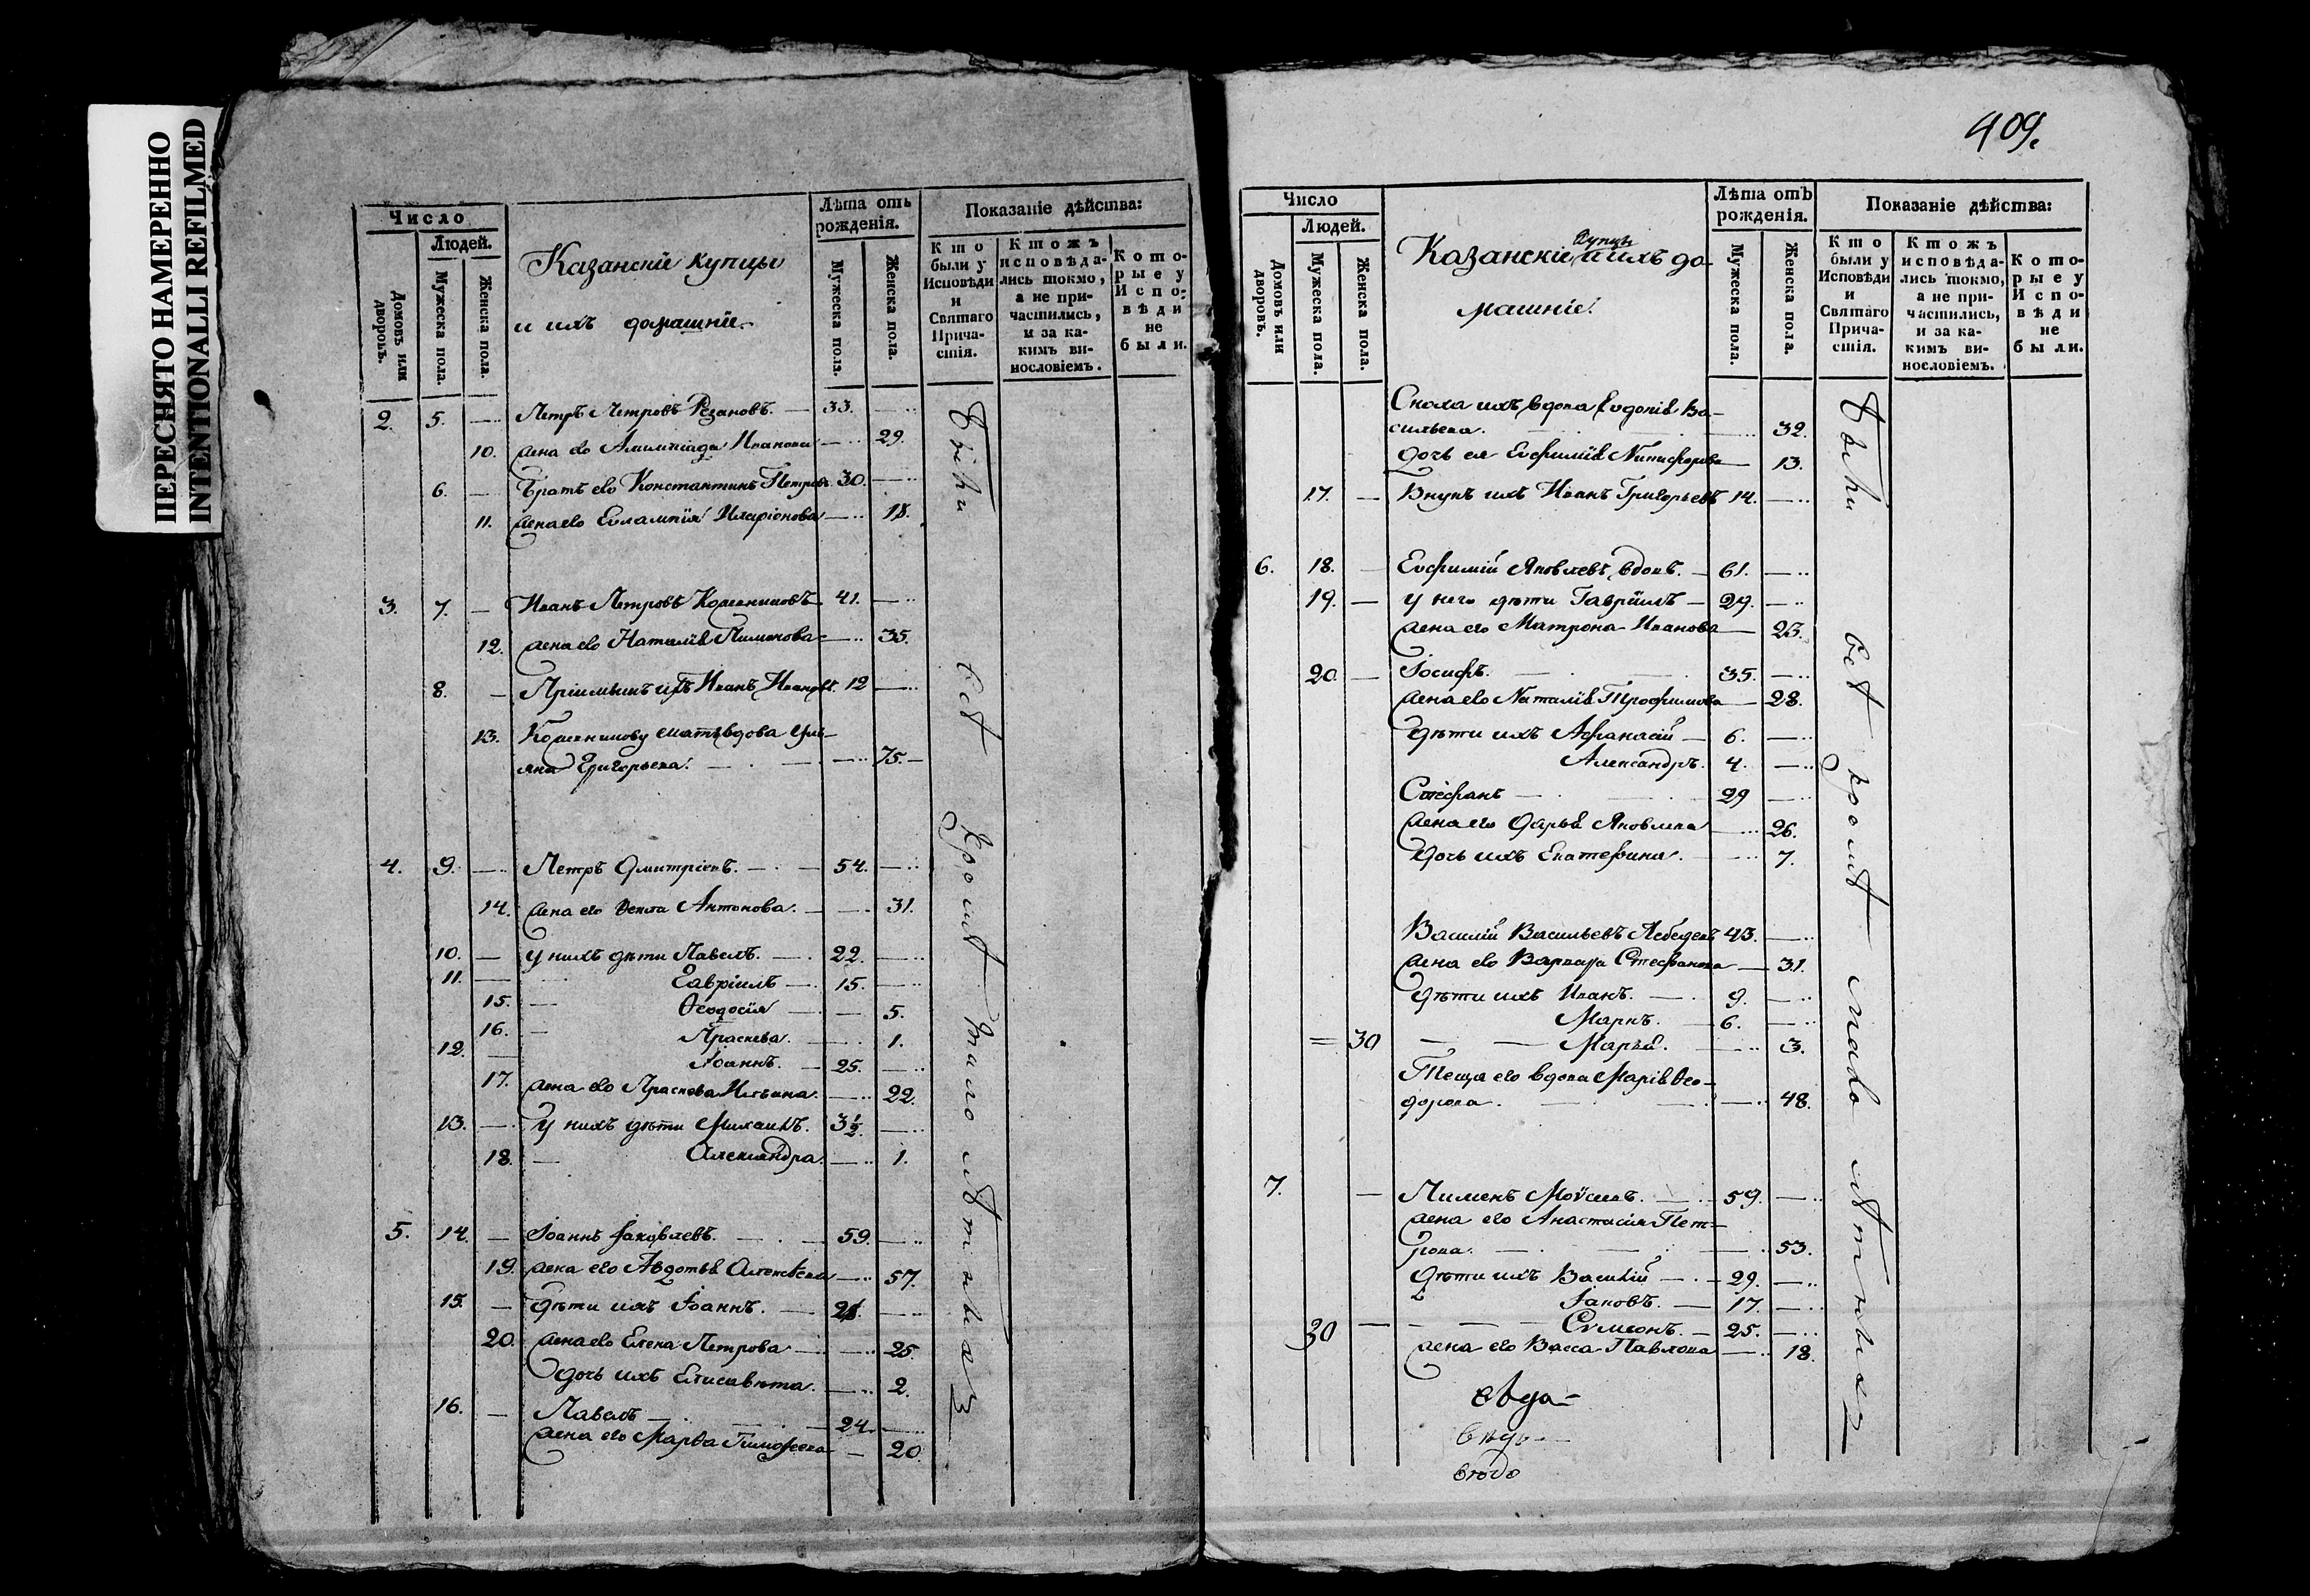 ПЕРЕСНЯТО НАМЕРЕННО
INTENTIONALLI REFILMED
Число
Людей.
Домовъ или дворовъ.
Мужеска пола.
Женска пола.
Казанскіе купцы
и ихъ домашніе.
Лѣта отъ рожденія.
Мужеска пола.
Женска пола.
Показаніе дѣйства:
Кто были у Исповѣди и Святаго Причастія.
Ктожъ исповѣдались токмо, а не причастились, и за какимъ винословіемъ.
Которые у Исповѣди не были.
2. 5. — Петръ Петровъ Резановъ. — 33. —
10. жена ево Алимпіада Иванова — 29.
6. — Братъ ево Константинъ Петровъ 30. —
11. жена ево Евлампія Иларіонова — 18.
3. 7. — Иванъ Петровъ 41. —
12. жена ево Наталія Пименова — 35.
8. — Пріимышъ ихъ Иванъ Ивановъ. 12 —
13. мать вдова Уль-
яна Григорьева. — 75. —
4. 9. — Петръ Дмитріевъ. — 54. —
14. жена его Ѳекла Антонова. — 31.
10. — у нихъ дѣти Павелъ. — 22. —
11. — Гавріилъ — 15. —
15. — Ѳеодосія — 5.
16. — Праскева. — 1.
12. — Іоаннъ. — 25. —
17. жена ево Праскева Ильина. — 22.
13. — У нихъ дѣти Михаилъ. 3½. —
18. — Александра. — 1.
5. 14. — Іоаннъ Іаковлевъ. — 59. —
19. жена его Авдотья Алексѣева — 57.
15. — Дѣти ихъ Іоаннъ. —
20. жена ево Елена Петрова — 25.
Дочь ихъ Елисавета. — 2.
16. — Павелъ — 24. —
жена ево Марѳа Тимофеева — 20.
были всѣ кромѣ малолѣтныхъ
409.
Число
Людей.
Домовъ или дворовъ.
Мужеска пола.
Женска пола.
Казанскіе купцы и ихъ до-
машніе.
Лѣта отъ рожденія.
Мужеска пола.
Женска пола.
Показаніе дѣйства:
Кто были у Исповѣди и Святаго Причастія.
Ктожъ исповѣдались токмо, а не причастились, и за какимъ винословіемъ.
Которые у Исповѣди не были.
Сноха ихъ вдова Евдокія Ва-
сильева. — 32.
дочь ея Евфимія Никифорова — 13.
17. — Внукъ ихъ Иванъ Григорьевъ 14. —
6. 18. — Евфимій Яковлевъ вдовъ. — 61. —
19. — у него дѣти Гавріилъ — 29. —
жена его Матрона Иванова — 23.
20. — Іосифъ. — 35. —
жена ево Наталія Трофимова — 28.
Дѣти ихъ Афанасій — 6. —
Александръ. 4. —
Стефанъ — 29 —
жена его Дарья Яковлева — 26.
Дочь ихъ Екатерина. — 7.
Василій Васильевъ Лебедевъ 43. —
жена ево Варвара Стефанова — 31.
Дѣти ихъ Иванъ. — 9. —
Маркъ. — 6. —
= 30 — — Марья. — 3.
Теща его вдова Марія Ѳео-
дорова. — 48.
7. — Пименъ Моѵсеевъ. — 59. —
жена ево Анастасія Пет-
рова. — 53.
Дѣти ихъ Василій — 29. —
Іаковъ. — 17. —
30 — Сѵмеонъ. — 25. —
жена ево Васса Павлова — 18.
были всѣ кромѣ малолѣтныхъ